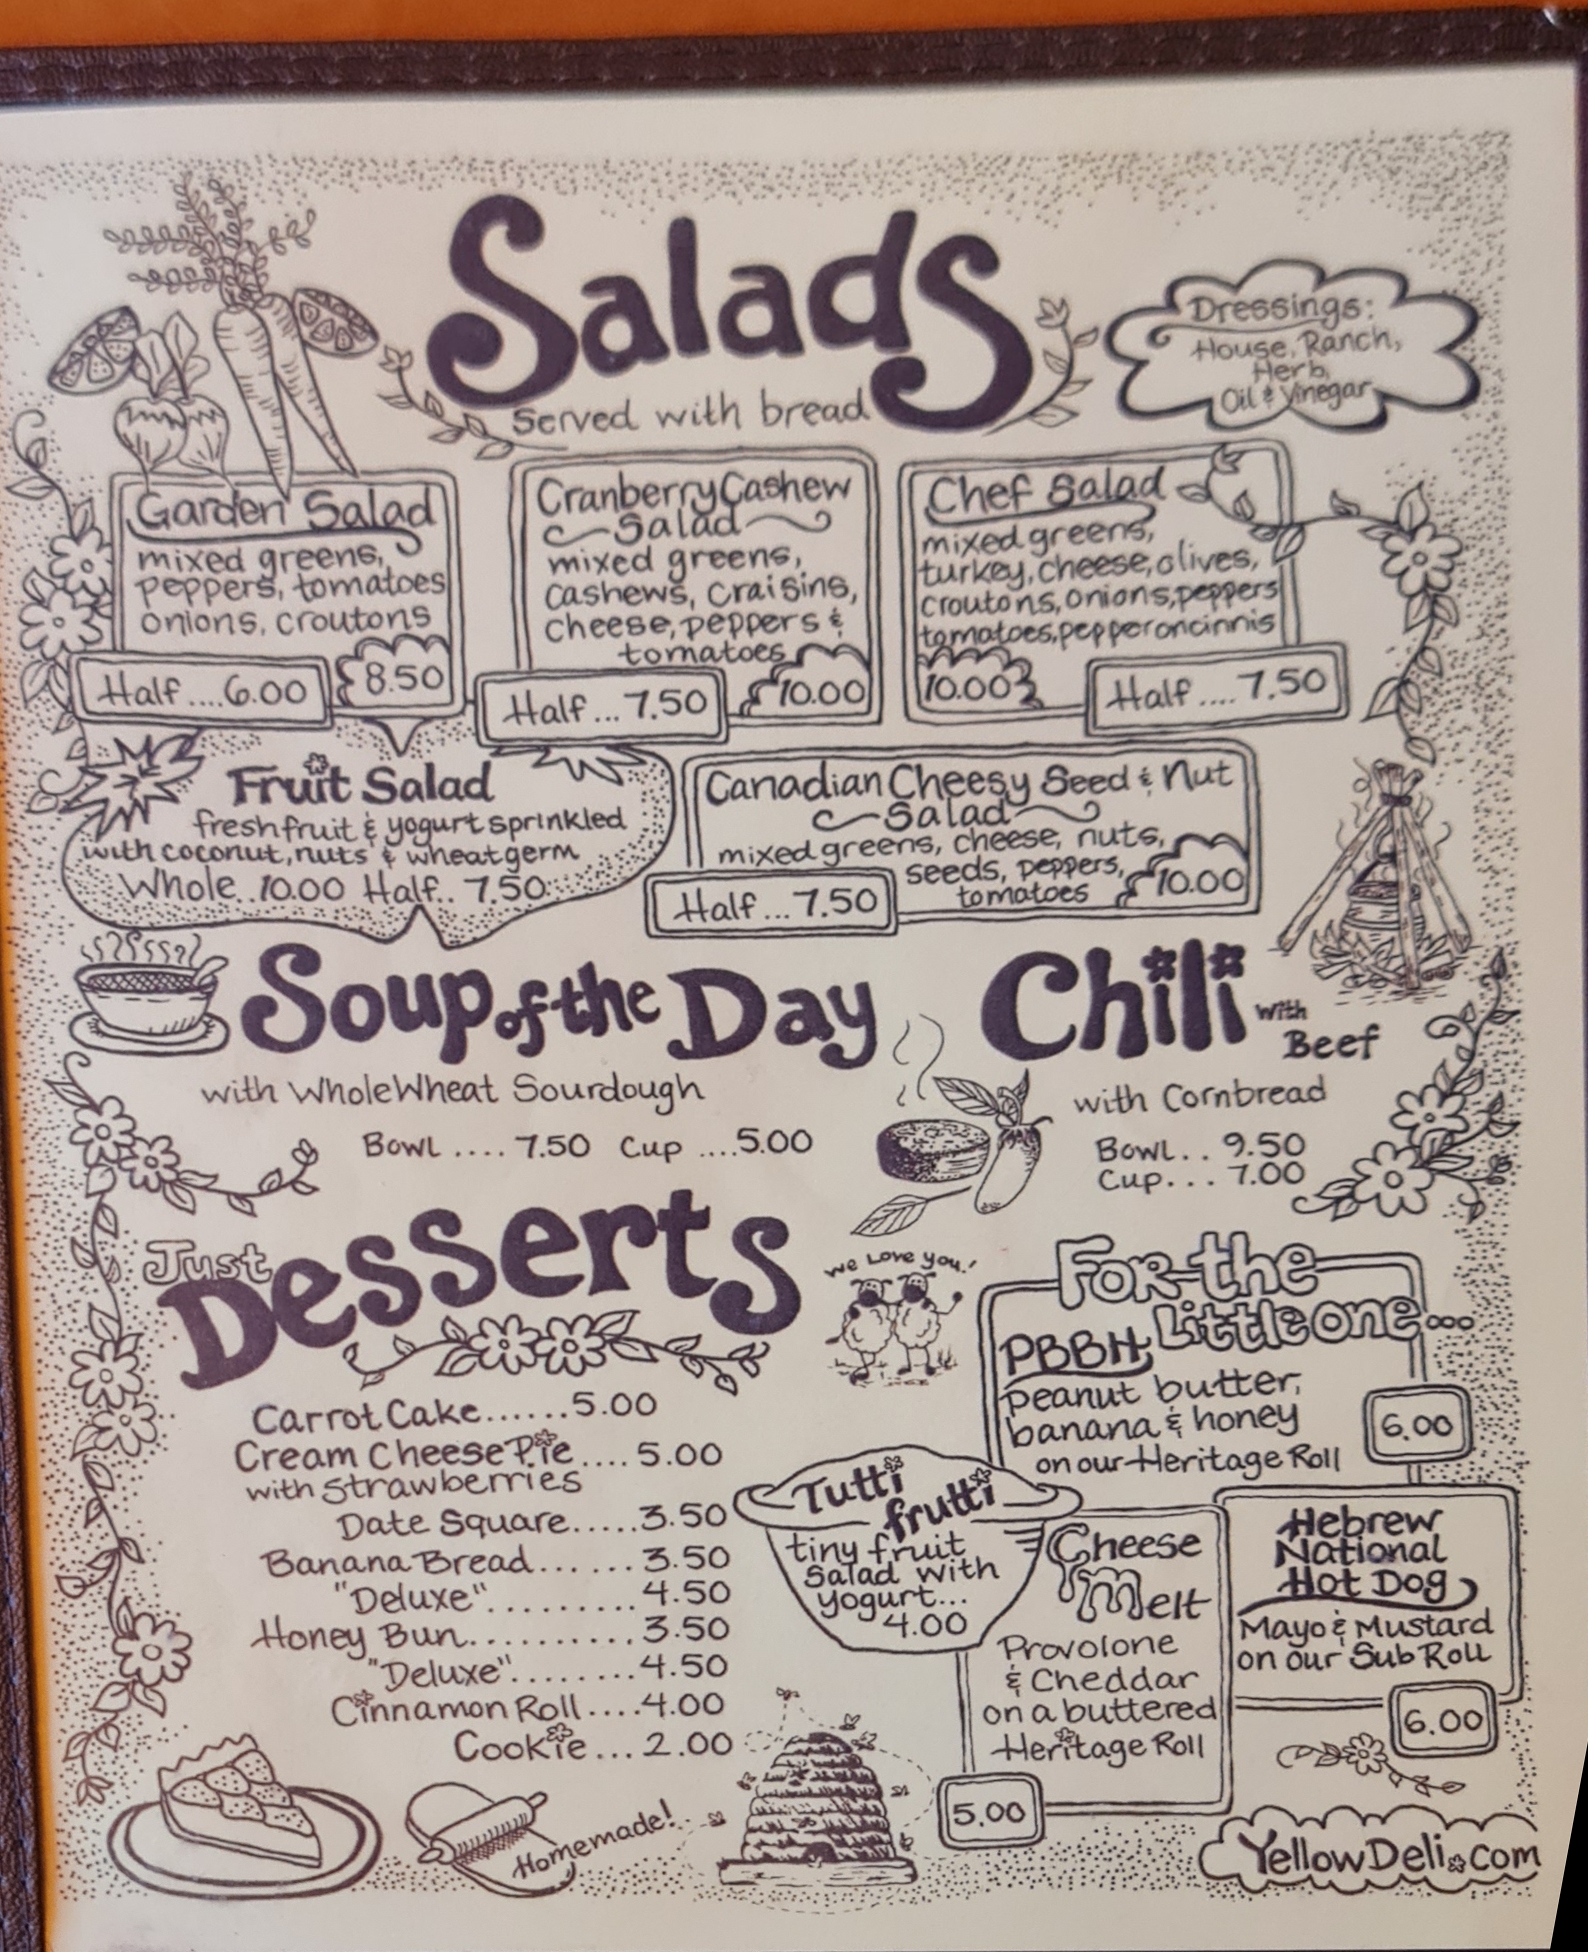 Salads
Served with bread
Dressings:
House, Ranch,
Herb,
Oil & Vinegar
Garden Salad
mixed greens,
peppers, tomatoes
onions, croutons
Half....6.00
8.50
Cranberry Cashew
Salad
mixed greens,
cashews, craisins,
cheese, peppers &
tomatoes
Half...7.50
10.00
Chef Salad
mixed greens,
turkey, cheese, olives,
croutons, onions, peppers
tomatoes, pepperoncinnis
10.00
Half....7.50
Fruit Salad
fresh fruit & yogurt sprinkled
with coconut, nuts & wheat germ
Whole..10.00 Half..7.50
Canadian Cheesy Seed & Nut
Salad
mixed greens, cheese, nuts,
seeds, peppers,
tomatoes
Half...7.50
10.00
Soup of the Day
with Whole Wheat Sourdough
Bowl....7.50 Cup....5.00
Chili with
Beef
with Cornbread
Bowl..9.50
Cup...7.00
Just
Desserts
Carrot Cake......5.00
Cream Cheese Pie....5.00
with strawberries
Date Square.....3.50
Banana Bread.......3.50
"Deluxe"..........4.50
Honey Bun..........3.50
"Deluxe"........4.50
Cinnamon Roll....4.00
Cookie...2.00
Homemade!
We Love you!
For the
Little one...
PBBH
peanut butter,
banana & honey
on our Heritage Roll
6.00
Tutti
frutti
tiny fruit
salad with
yogurt...
4.00
Cheese
Melt
Provolone
& Cheddar
on a buttered
Heritage Roll
5.00
Hebrew
National
Hot Dog
Mayo & Mustard
on our Sub Roll
6.00
YellowDeli.com